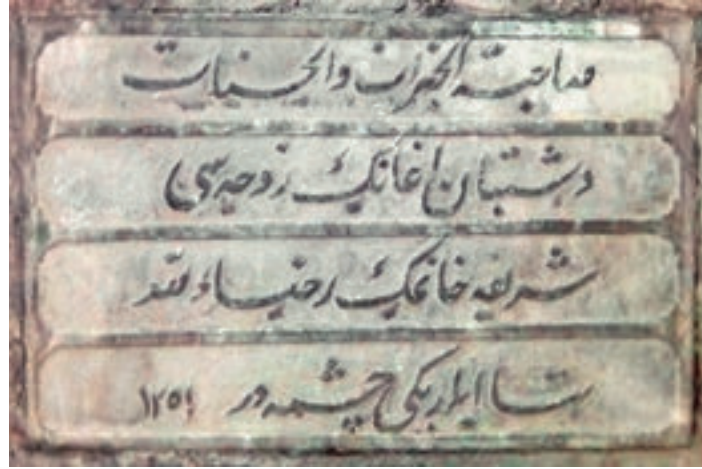 صاحبة الخيرات والحسنات
دشتبان اغانك زوجه سی
شريفه خانمك رضاء لله
بنا ايلديكی چشمه در